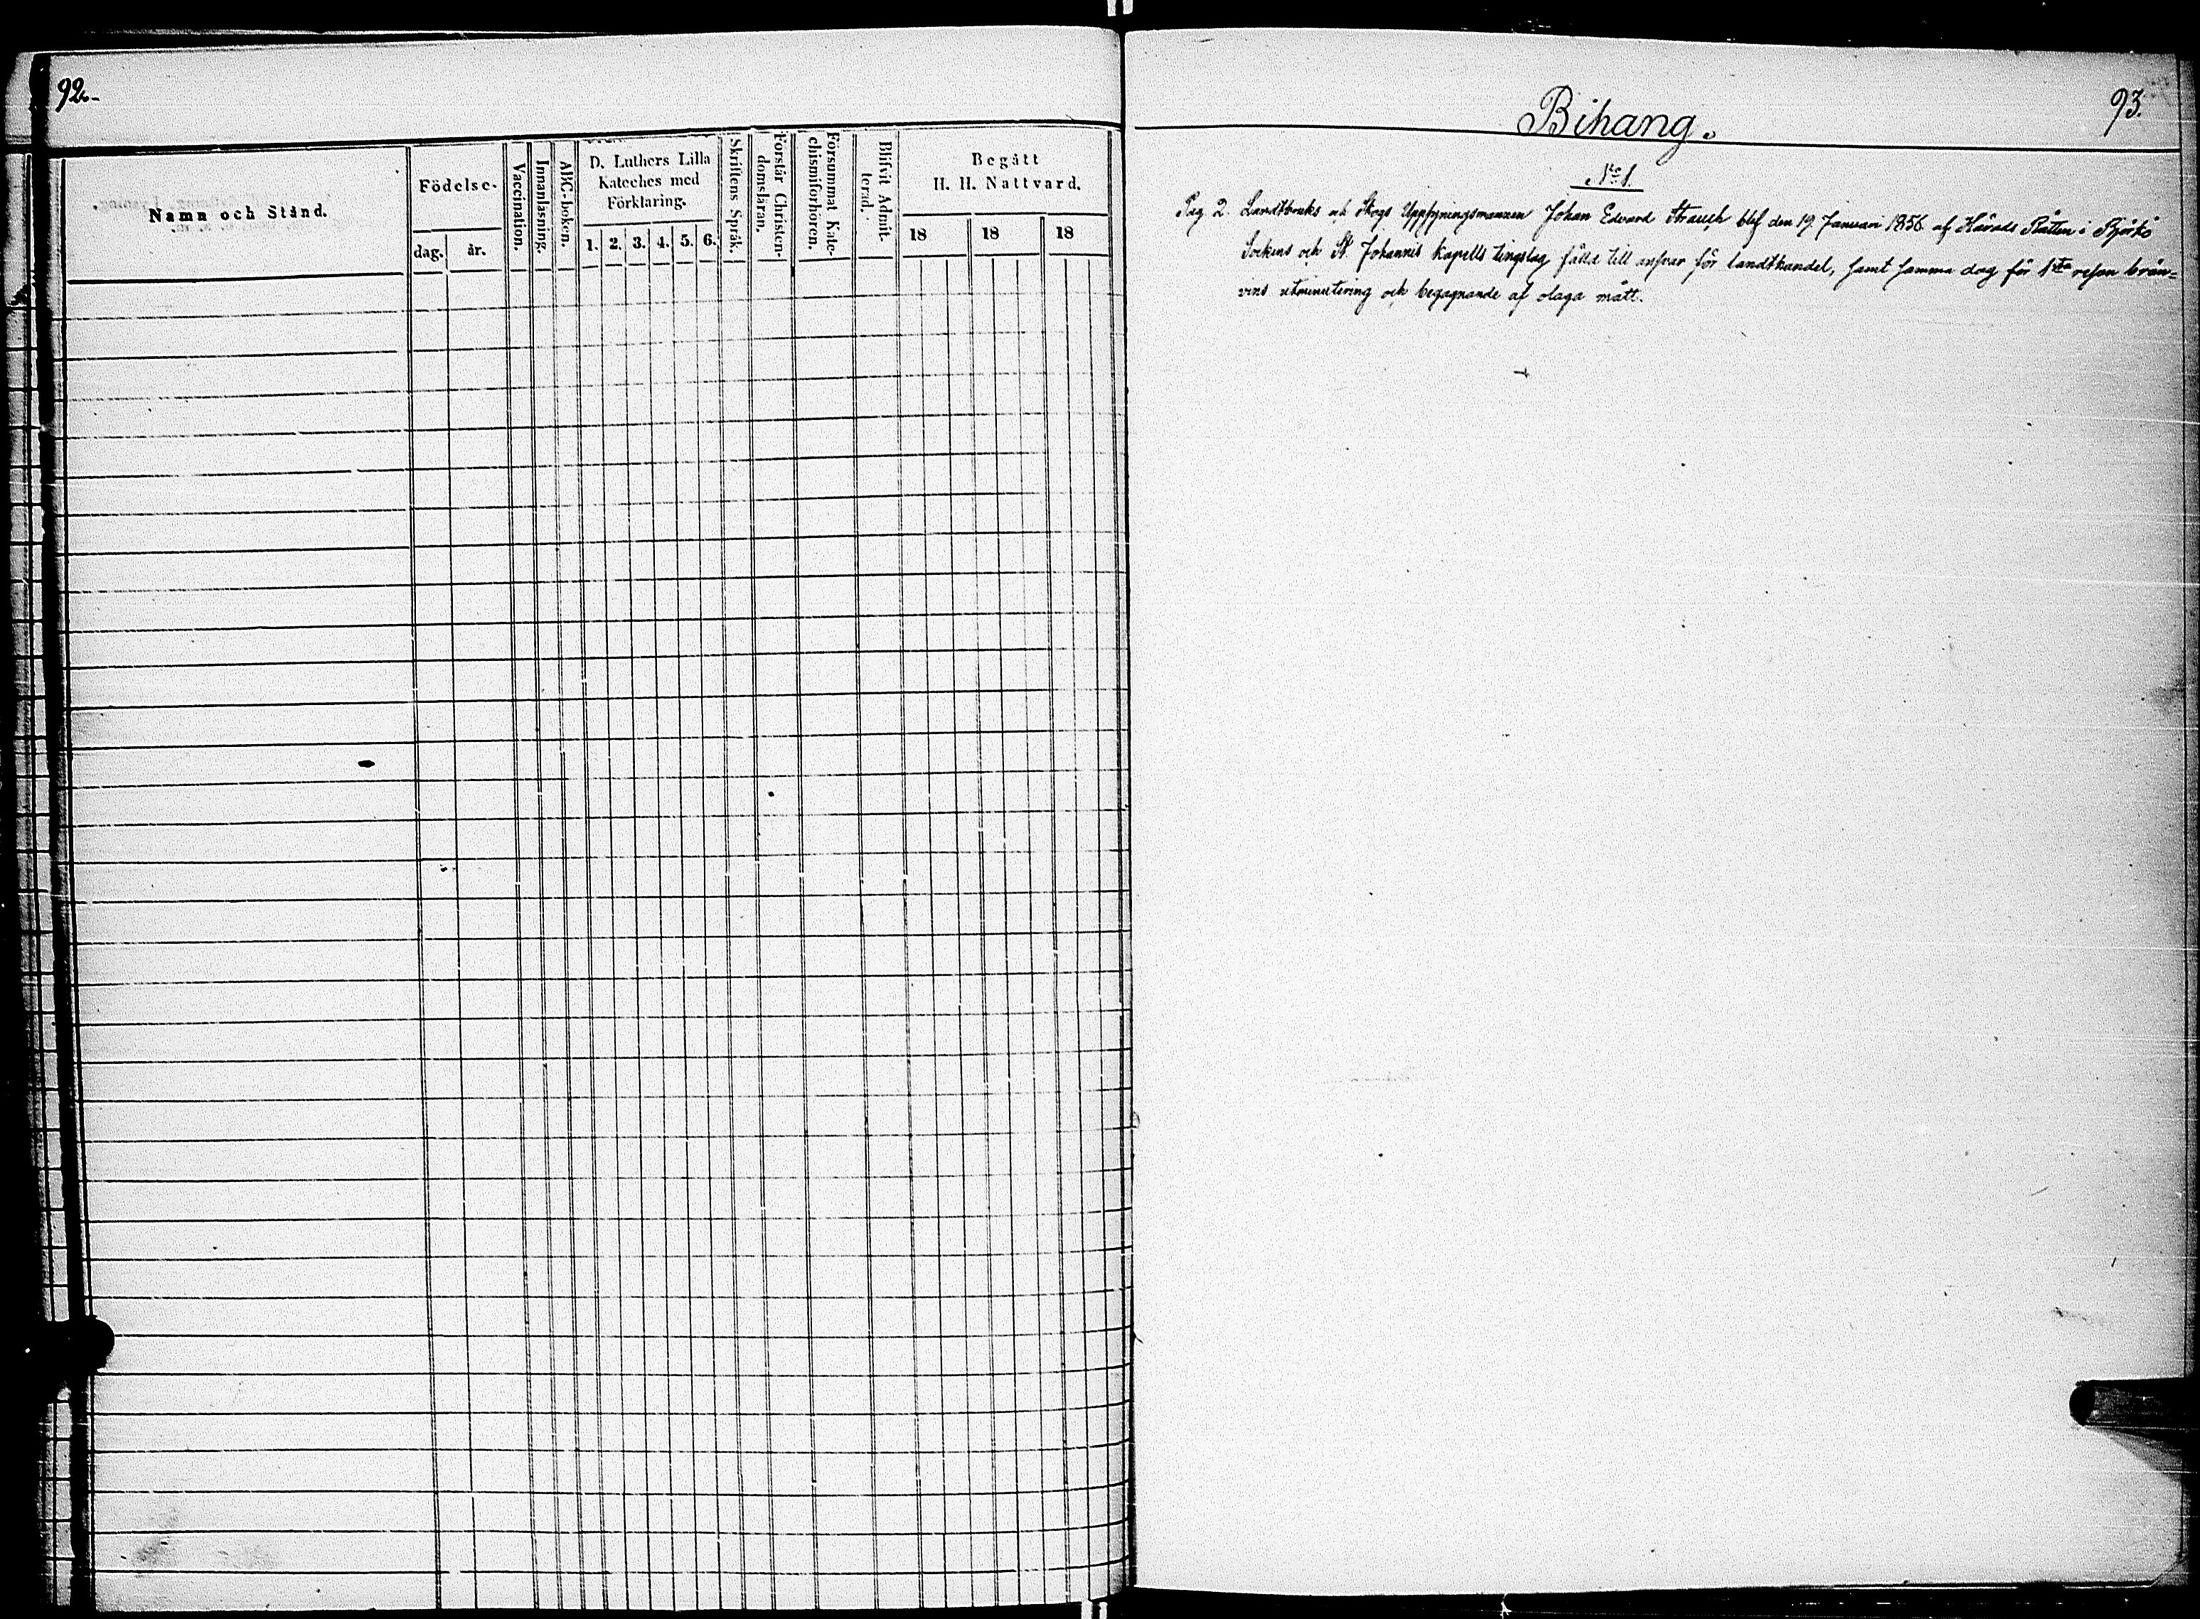 92.-
Namn och Stånd.
Födelse-
dag. år.
Vaccination.
Innanläsning.
ABC-boken.
D. Luthers Lilla
Kateches med
Förklaring.
1. 2. 3. 4. 5. 6.
Skriftens Språk.
Förstår Christen-
domsläran.
Försummat Kate-
chismiförhören.
Blifvit Admit-
terad.
Begått
H. H. Nattvard.
18 18 18
93.
Bihang.
No 1.
Pag 2. Landtbruks och Skogs Uppsyningsmannen Johan Edvard Strauch blef den 19 Januari 1856 af Härads Rätten i Björkö
Sockens och St Johannis Kapells tingslag fälld till ansvar för landthandel, samt samma dag för 1sta resan brän=
vins utminutering och begagnande af olaga mått.